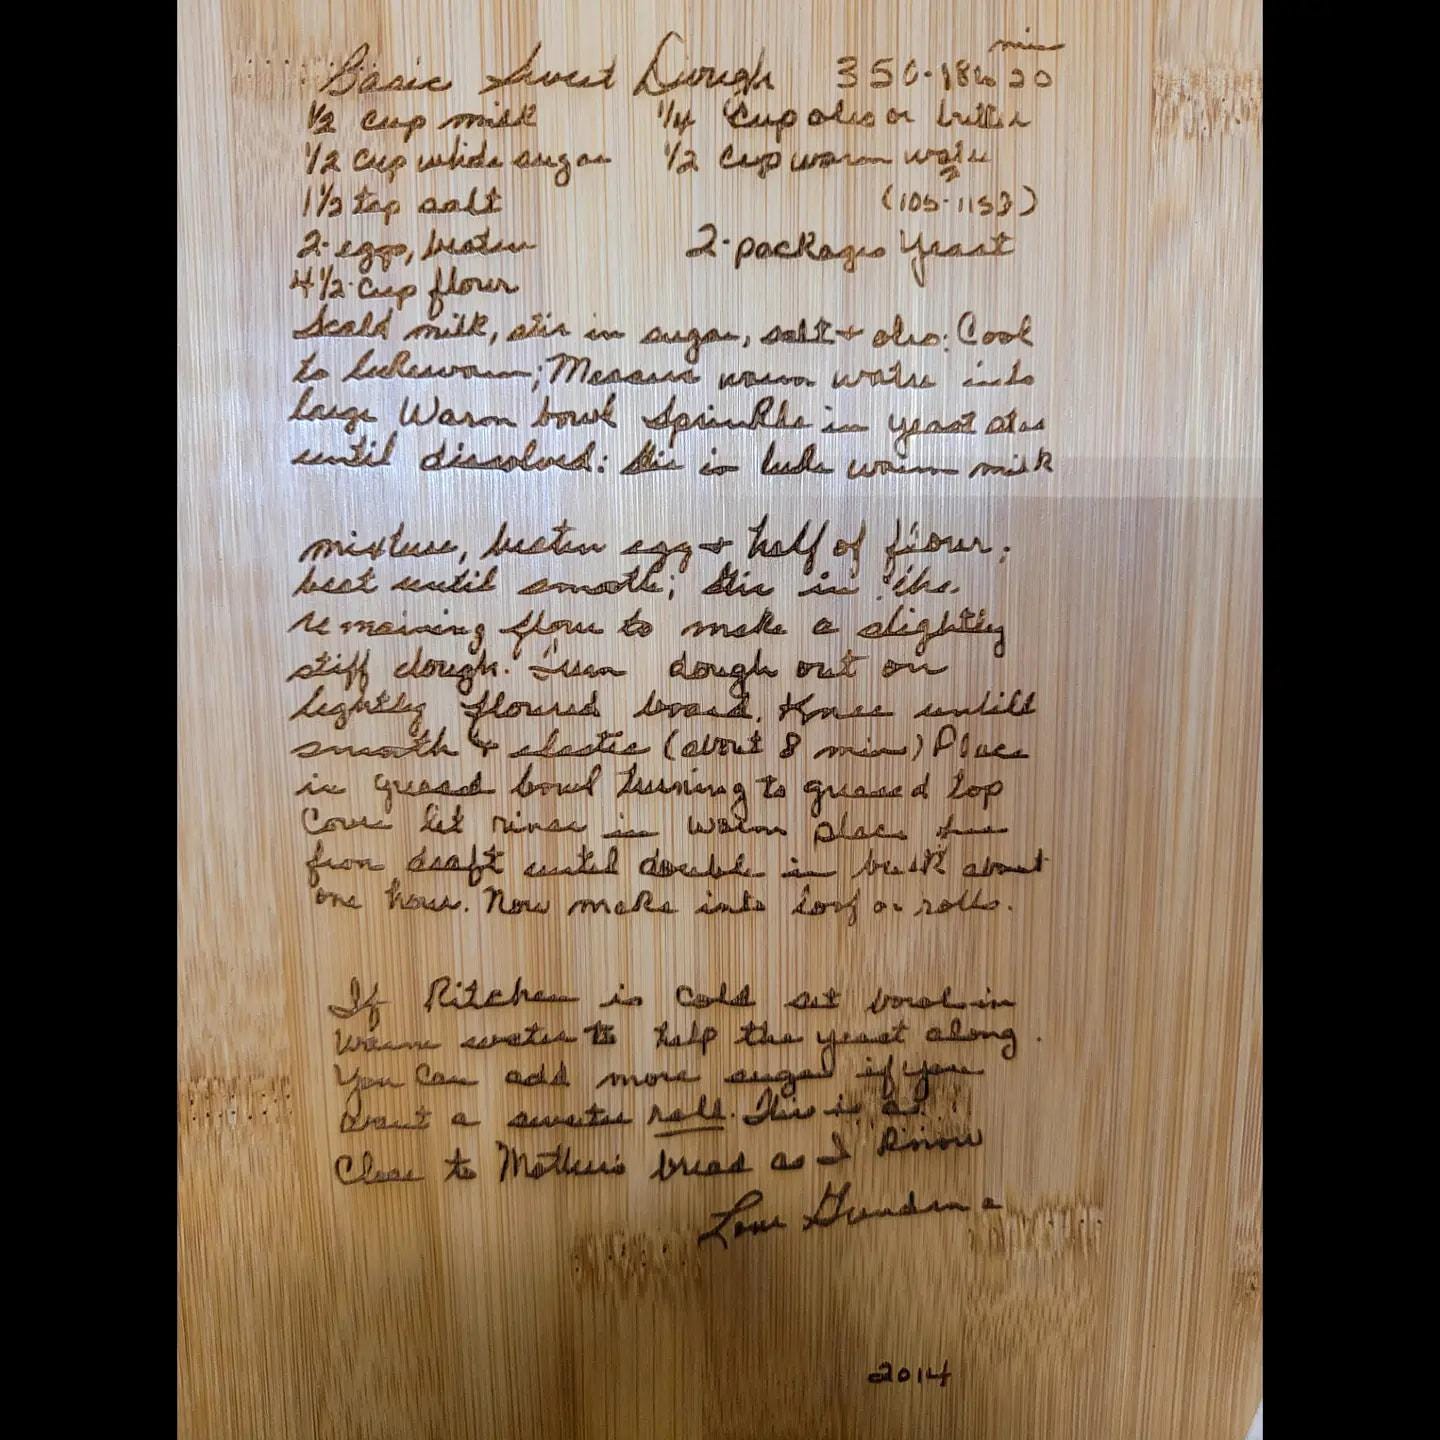 Basic Sweet Dough 350-18 to 20 min
1/2 cup milk 1/4 cup oleo or butter
1/2 cup white sugar 1/2 cup warm water
1 1/2 tsp salt (105-115°)
2-eggs, beaten 2-packages Yeast
4 1/2 cup flour
Scald milk, stir in sugar, salt + oleo: Cool
to lukewarm; Measure warm water into
large Warm bowl Sprinkle in yeast stir
until dissolved: Stir in luke warm milk
mixture, beaten egg + half of flour;
beat until smooth; Stir in the
remaining flour to make a slightly
stiff dough. Turn dough out on
lightly floured board. Knee untill
smooth + elastic (about 8 min) Place
in greased bowl turning to greased top
Cover let rise in warm place free
from draft until double in bulk about
one hour. Now make into loaf or rolls.
If Kitchen is cold set bowl in
Warm water to help the yeast along.
You can add more sugar if you
want a sweeter roll. This is as
Close to Mother's bread as I know
Love Grandma
2014